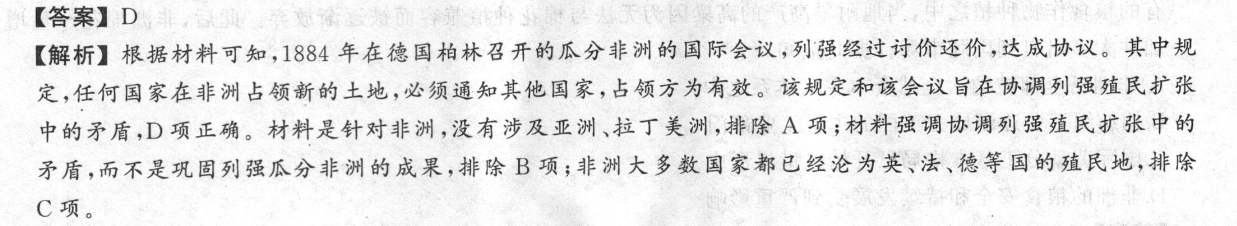 【答案】D
【解析】根据材料可知,1884年在德国柏林召开的瓜分非洲的国际会议,列强经过讨价还价,达成协议。其中规
定,任何国家在非洲占领新的土地,必须通知其他国家,占领方为有效。该规定和该会议旨在协调列强殖民扩张
中的矛盾,D项正确。材料是针对非洲,没有涉及亚洲、拉丁美洲,排除A项;材料强调协调列强殖民扩张中的
矛盾,而不是巩固列强瓜分非洲的成果,排除B项;非洲大多数国家都已经沦为英、法、德等国的殖民地,排除
C项。